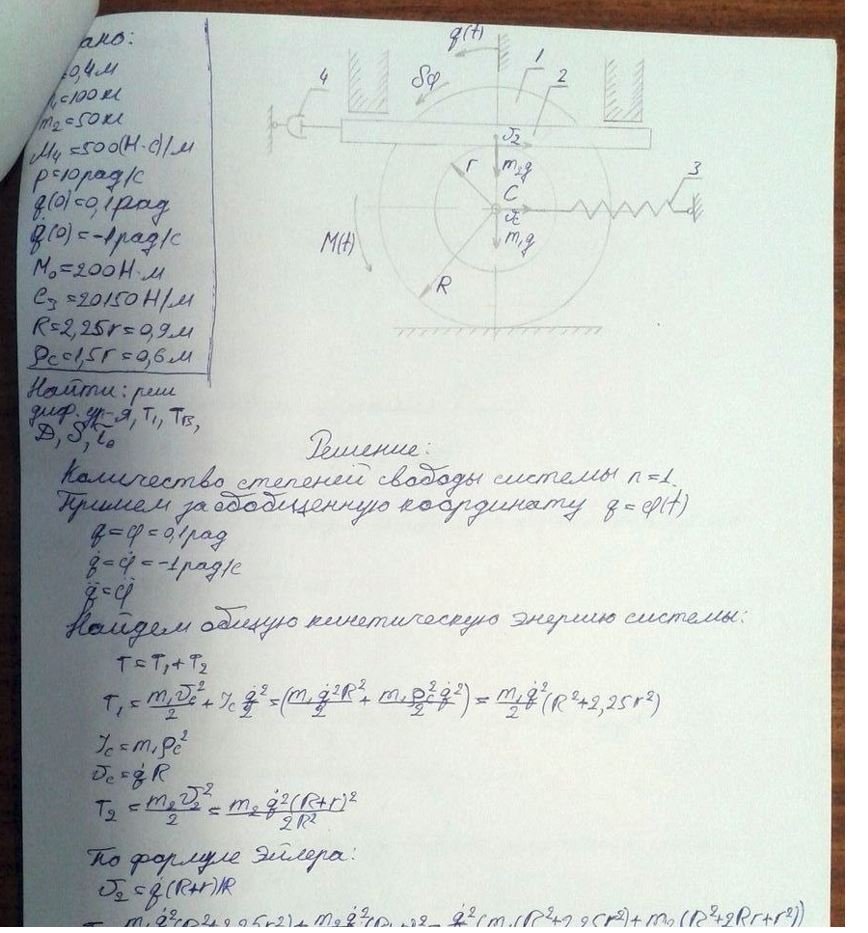 ано:
=0,4м
=100кг
m₂=50кг
μ₄=500(Н·с)/м
p=10рад/с
q(0)=0,1рад
q̇(0)=-1рад/с
M₀=200Н·м
C₃=20150Н/м
R=2,25r=0,9м
ρc=1,5r=0,6м
Найти: реш
диф. ур-я, T₁, Tв,
D, δ, τ₀
q(t)
δφ
1
2
4
V₂
m₂g
r
C
3
Vc
m₁g
M(t)
R
Решение:
Количество степеней свободы системы n=1.
Примем за обобщенную координату q=φ(t)
q=φ=0,1рад
q̇=φ̇=-1рад/с
q̈=φ̈
Найдем общую кинетическую энергию системы:
T=T₁+T₂
T₁=m₁Vc²/2+Jc q̇²/2=(m₁q̇²R²/2+m₁ρc²q̇²/2)=m₁q̇²/2(R²+2,25r²)
Jc=m₁ρc²
Vc=q̇R
T₂=m₂V₂²/2=m₂q̇²(R+r)²/2R²
По формуле Эйлера:
V₂=q̇(R+r)/R